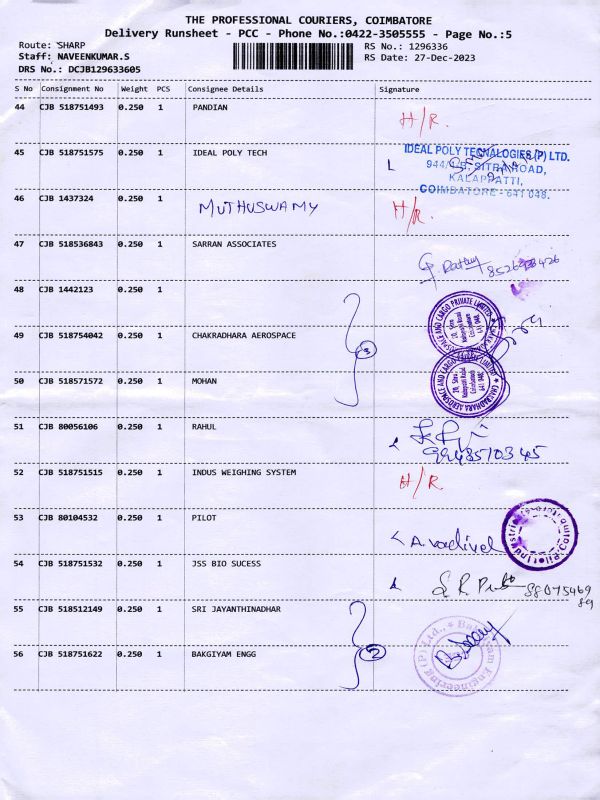 THE PROFESSIONAL COURIERS, COIMBATORE
Delivery Runsheet - PCC - Phone No.:0422-3505555 - Page No.:5
Route: SHARP
Staff: NAVEENKUMAR.S
DRS No.: DCJB129633605
RS No.: 1296336
RS Date: 27-Dec-2023
S No Consignment No Weight PCS Consignee Details Signature
44 CJB 518751493 0.250 1 PANDIAN H/R.
45 CJB 518751575 0.250 1 IDEAL POLY TECH
IDEAL POLY TECNALOGIES (P) LTD.
SITRA ROAD,
KALAPPATTI,
COIMBATORE - 641 048.
46 CJB 1437324 0.250 1 MUTHUSWAMY H/R.
47 CJB 518536843 0.250 1 SARRAN ASSOCIATES
48 CJB 1442123 0.250 1
49 CJB 518754042 0.250 1 CHAKRADHARA AEROSPACE
3
50 CJB 518571572 0.250 1 MOHAN
CHAKRADHARA AEROSPACE AND CARGO PRIVATE LIMITED
51 CJB 80056106 0.250 1 RAHUL
9948570345
52 CJB 518751515 0.250 1 INDUS WEIGHING SYSTEM H/R
53 CJB 80104532 0.250 1 PILOT
A. vadivel
54 CJB 518751532 0.250 1 JSS BIO SUCESS
55 CJB 518512149 0.250 1 SRI JAYANTHINADHAR
2
56 CJB 518751622 0.250 1 BAKGIYAM ENGG